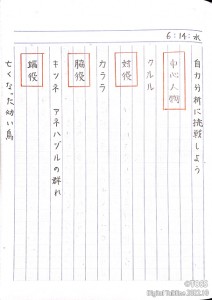 6:14:水
自力分析に挑戦しよう
中心人物
クルル
対役
カララ
脇役
キツネ アネハヅルの群れ
端役
亡くなった幼い鳥
©TOSS
Digital Talkline 2023.10